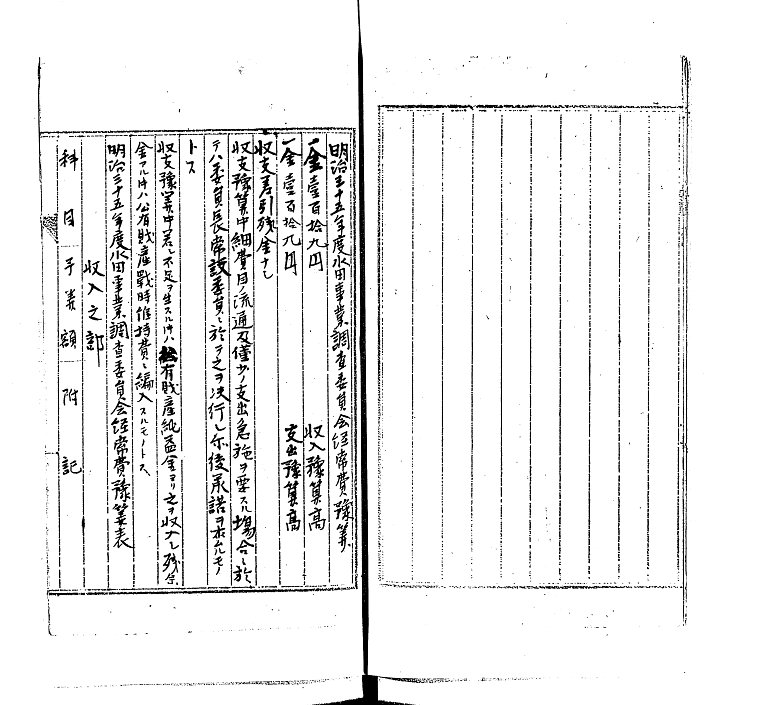 明治三十五年度水田事業調査委員会経常費豫算
一金壹百拾九円　収入豫算高
一金壹百拾九円　支出豫算高
収支差引残金ナシ
収支豫算中細費目ノ流通及僅少ノ支出急施ヲ要スル場合ニ於
テハ委員長常設委員ニ於テ之ヲ決行シ尓後承諾ヲ求ムルモノ
トス
収支豫算中若シ不足ヲ生スル時ハ公有財産純益金ヨリ之ヲ収入シ残余
金アル時ハ公有財産戰時維持費ニ編入スルモノトス
明治三十五年度水田事業調査委員会経常費豫算表
収入之部
科目　予算額　附記